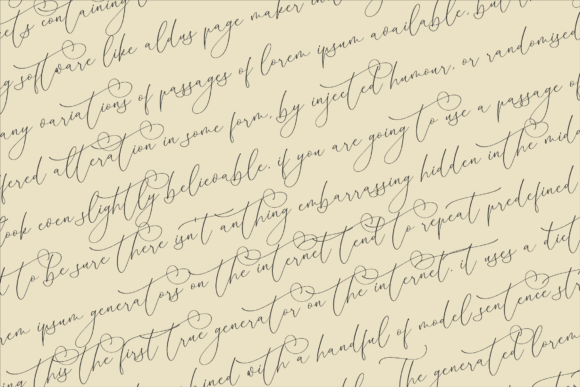 containing
g software like aldus page maker in
any variations of passages of lorem ipsum available, but
fered alteration in some form, by injected humour, or randomised
ook even slightly believable. if you are going to use a passage of
d to be sure there isn't anthing embarrassing hidden in the midd
rem ipsum generators on the internet tend to repeat predefined
ing this the first true generator on the internet. it uses a dict
bined with a handful of model sentence str
The generated lorem